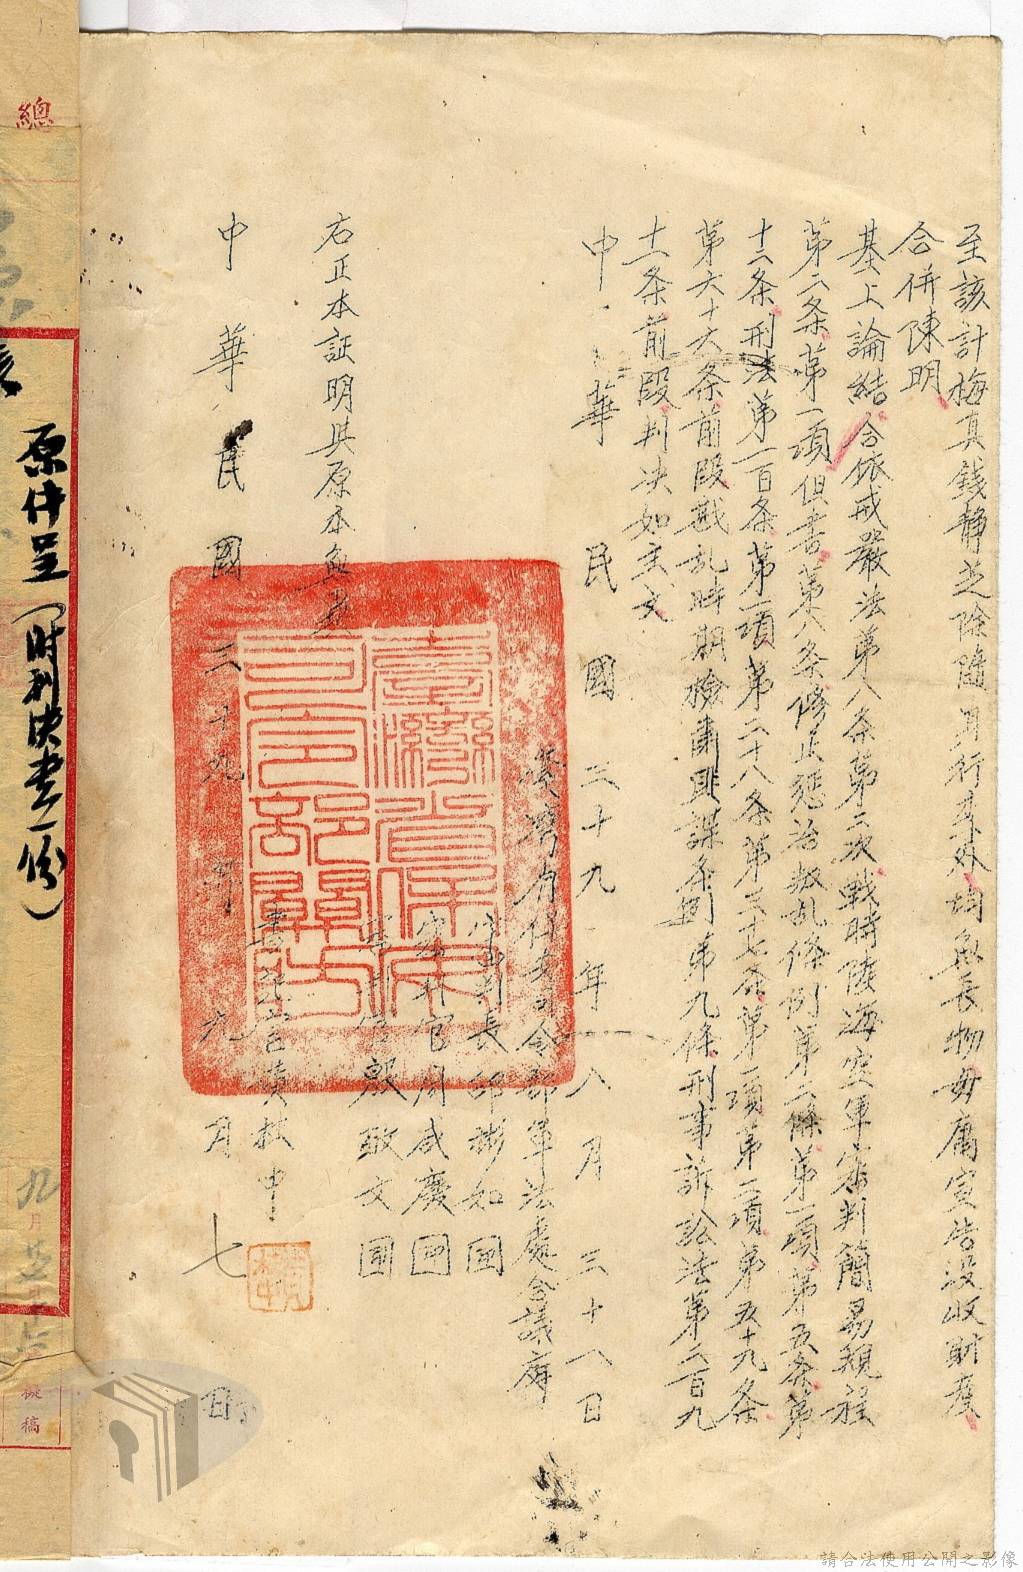 至該計梅真錢靜芝除隨身行李外均無長物毋庸宣告沒收財產
合併陳明
基上論結合依戒嚴法第八条第二次戰時陸海空軍審判簡易規程
第二条第一項但書第八条修正惩治叛乱條例第二條第一項第五条第
十二条刑法第一百条第一項第二十八条第三十七条第一項第二項第五十九条
第六十六条前段戡乱時期檢肅匪諜条例第九條刑事訴訟法第二百九
十一条前段判决如主文
中華民國三十九年八月三十八日
臺灣省保安司令部軍法處合議庭
審判長邱彬如 圖
審判官周咸慶 圖
審判官殷敬文 圖
右正本証明與原本無異
書記官黃投中
中華民國三十九年九月七日
臺灣省保安司令部關防
總
原件呈(附判决書一份)
九月
擬稿
請合法使用公開之影像